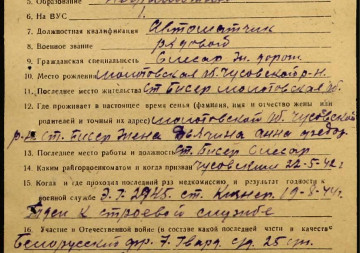 5. Образование
6. На ВУС 1
7. Должностная квалификация Автоматчик
8. Военное звание рядовой
9. Гражданская специальность Слесар ж. дорож
10. Место рождения Молотовская об. Чусовской р-н.
11. Последнее место жительства ст. Бисер Молотовская об.
12. Где проживает в настоящее время семья (фамилия, имя и отчество жены или
родителей и точный их адрес) Молотовской об. Чусовской
р-н ст. Бисер жена Анна
13. Последнее место работы и должность ст. Бисер Слесар
14. Каким райгорвоенкоматом и когда призван Чусовским 22-5-42 г
15. Когда и где проходил последний раз медкомиссию и результат годности к
военной службе 19-8-44 г.
Годен к строевой службе
16. Участие в Отечественной войне (в составе какой последней части и качестве
Белорусский фр. 7 Гвард. 25